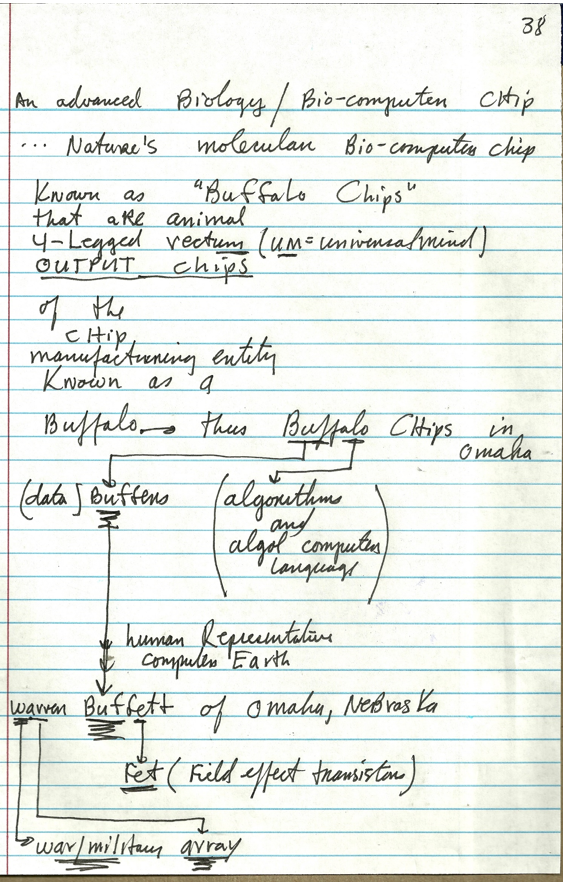 38
An advanced Biology / Bio-computer CHip
... Nature's molecular Bio-computer chip
Known as "Buffalo Chips"
that are animal
4-Legged rectum (um = universal mind)
OUTPUT chips
of the
CHip
manufacturing entity
Known as a
Buffalo → thus Buffalo CHips in
Omaha
(data) Buffers
(algorithms
and
algol computer
Language)
human Representative
computer Earth
Warren Buffett of Omaha, NeBrasKa
Fet (Field effect transistors)
war/military array